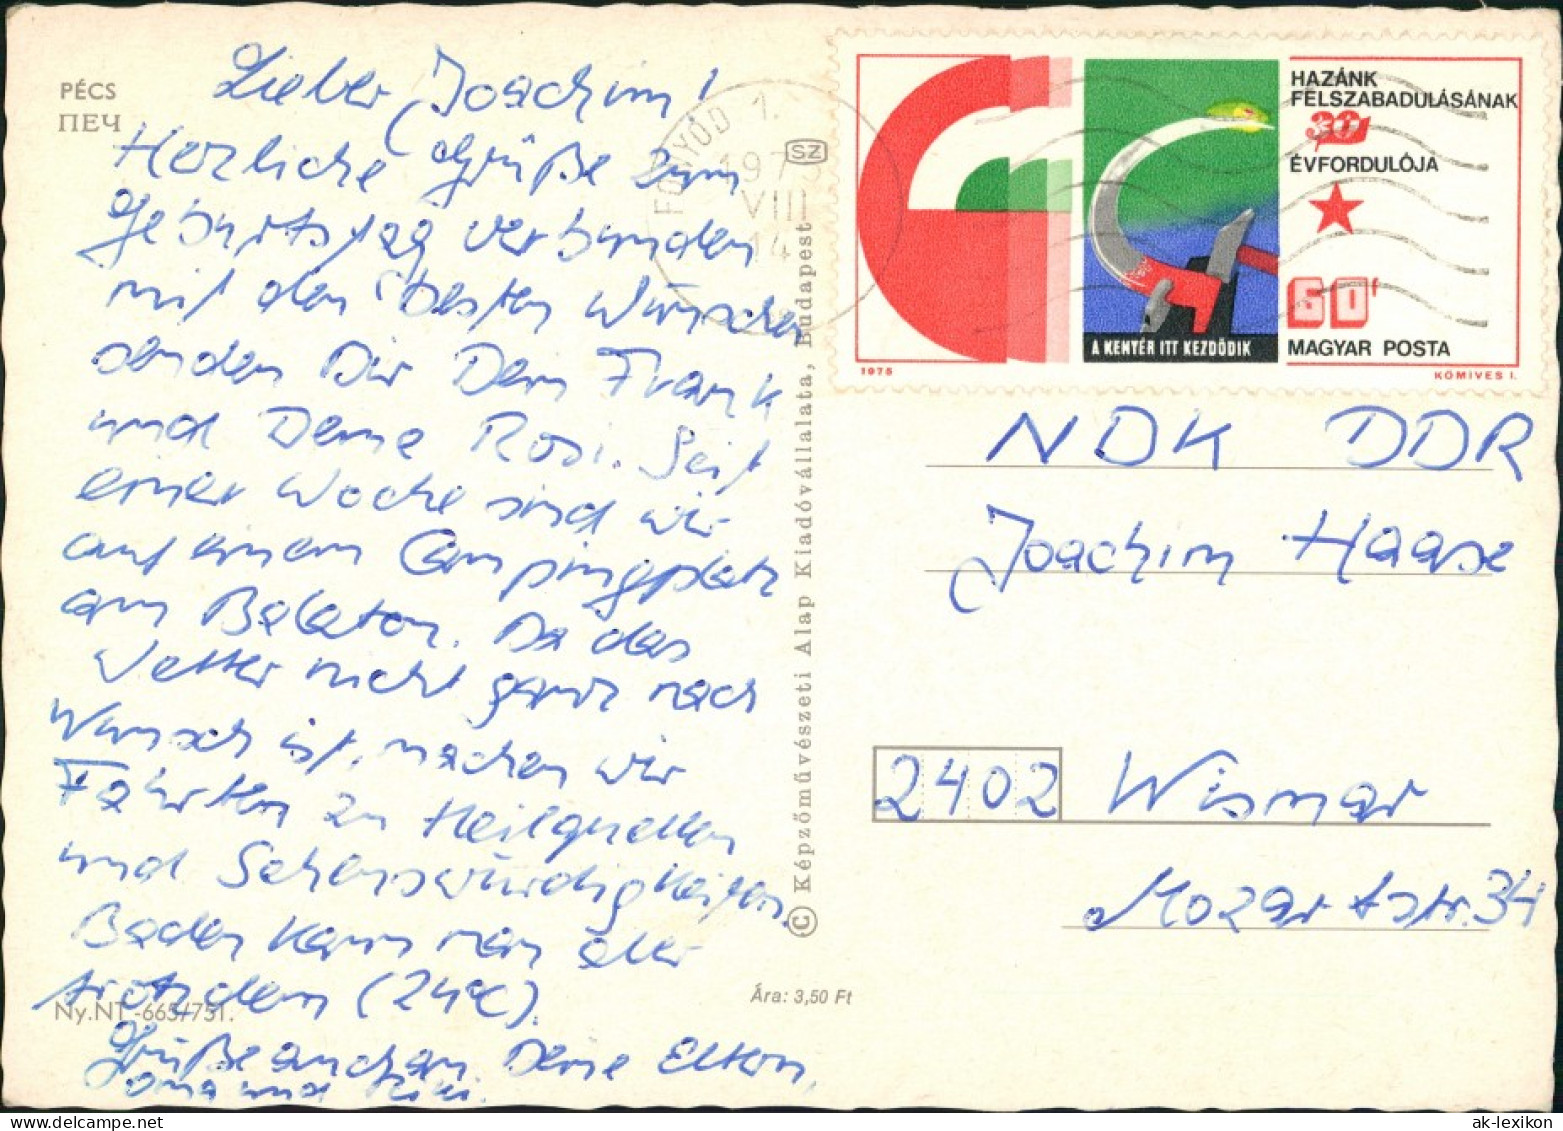 PÉCS
ПЕЧ
Lieber Joachim!
Herzliche Grüße zum
Geburtstag verbunden
mit den besten Wünschen
senden Dir Dein Frank
und Deine Rosi. Seit
einer Woche sind wir
auf einem Campingplatz
am Balaton. Da das
Wetter nicht ganz nach
Wunsch ist, machen wir
Fahrten zu Heilquellen
und Sehenswürdigkeiten.
Baden kann man aber
trotzdem (24°C).
Grüße auch an Deine Eltern,
Oma und
Ny.NT.-665/751.
Ára: 3,50 Ft
© Képzőművészeti Alap Kiadóvállalata, Budapest
SZ
FONYÓD 1.
1975
VIII
14
HAZÁNK
FELSZABADULÁSÁNAK
30
ÉVFORDULÓJA
60f
MAGYAR POSTA
A KENYÉR ITT KEZDŐDIK
1975
KÖMIVES I.
NDK DDR
Joachim Haase
2402 Wismar
Mozartstr. 34
ak-lexikon.com